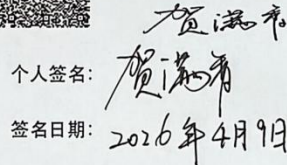 贺满青
个人签名：贺满青
签名日期：2026年4月9日